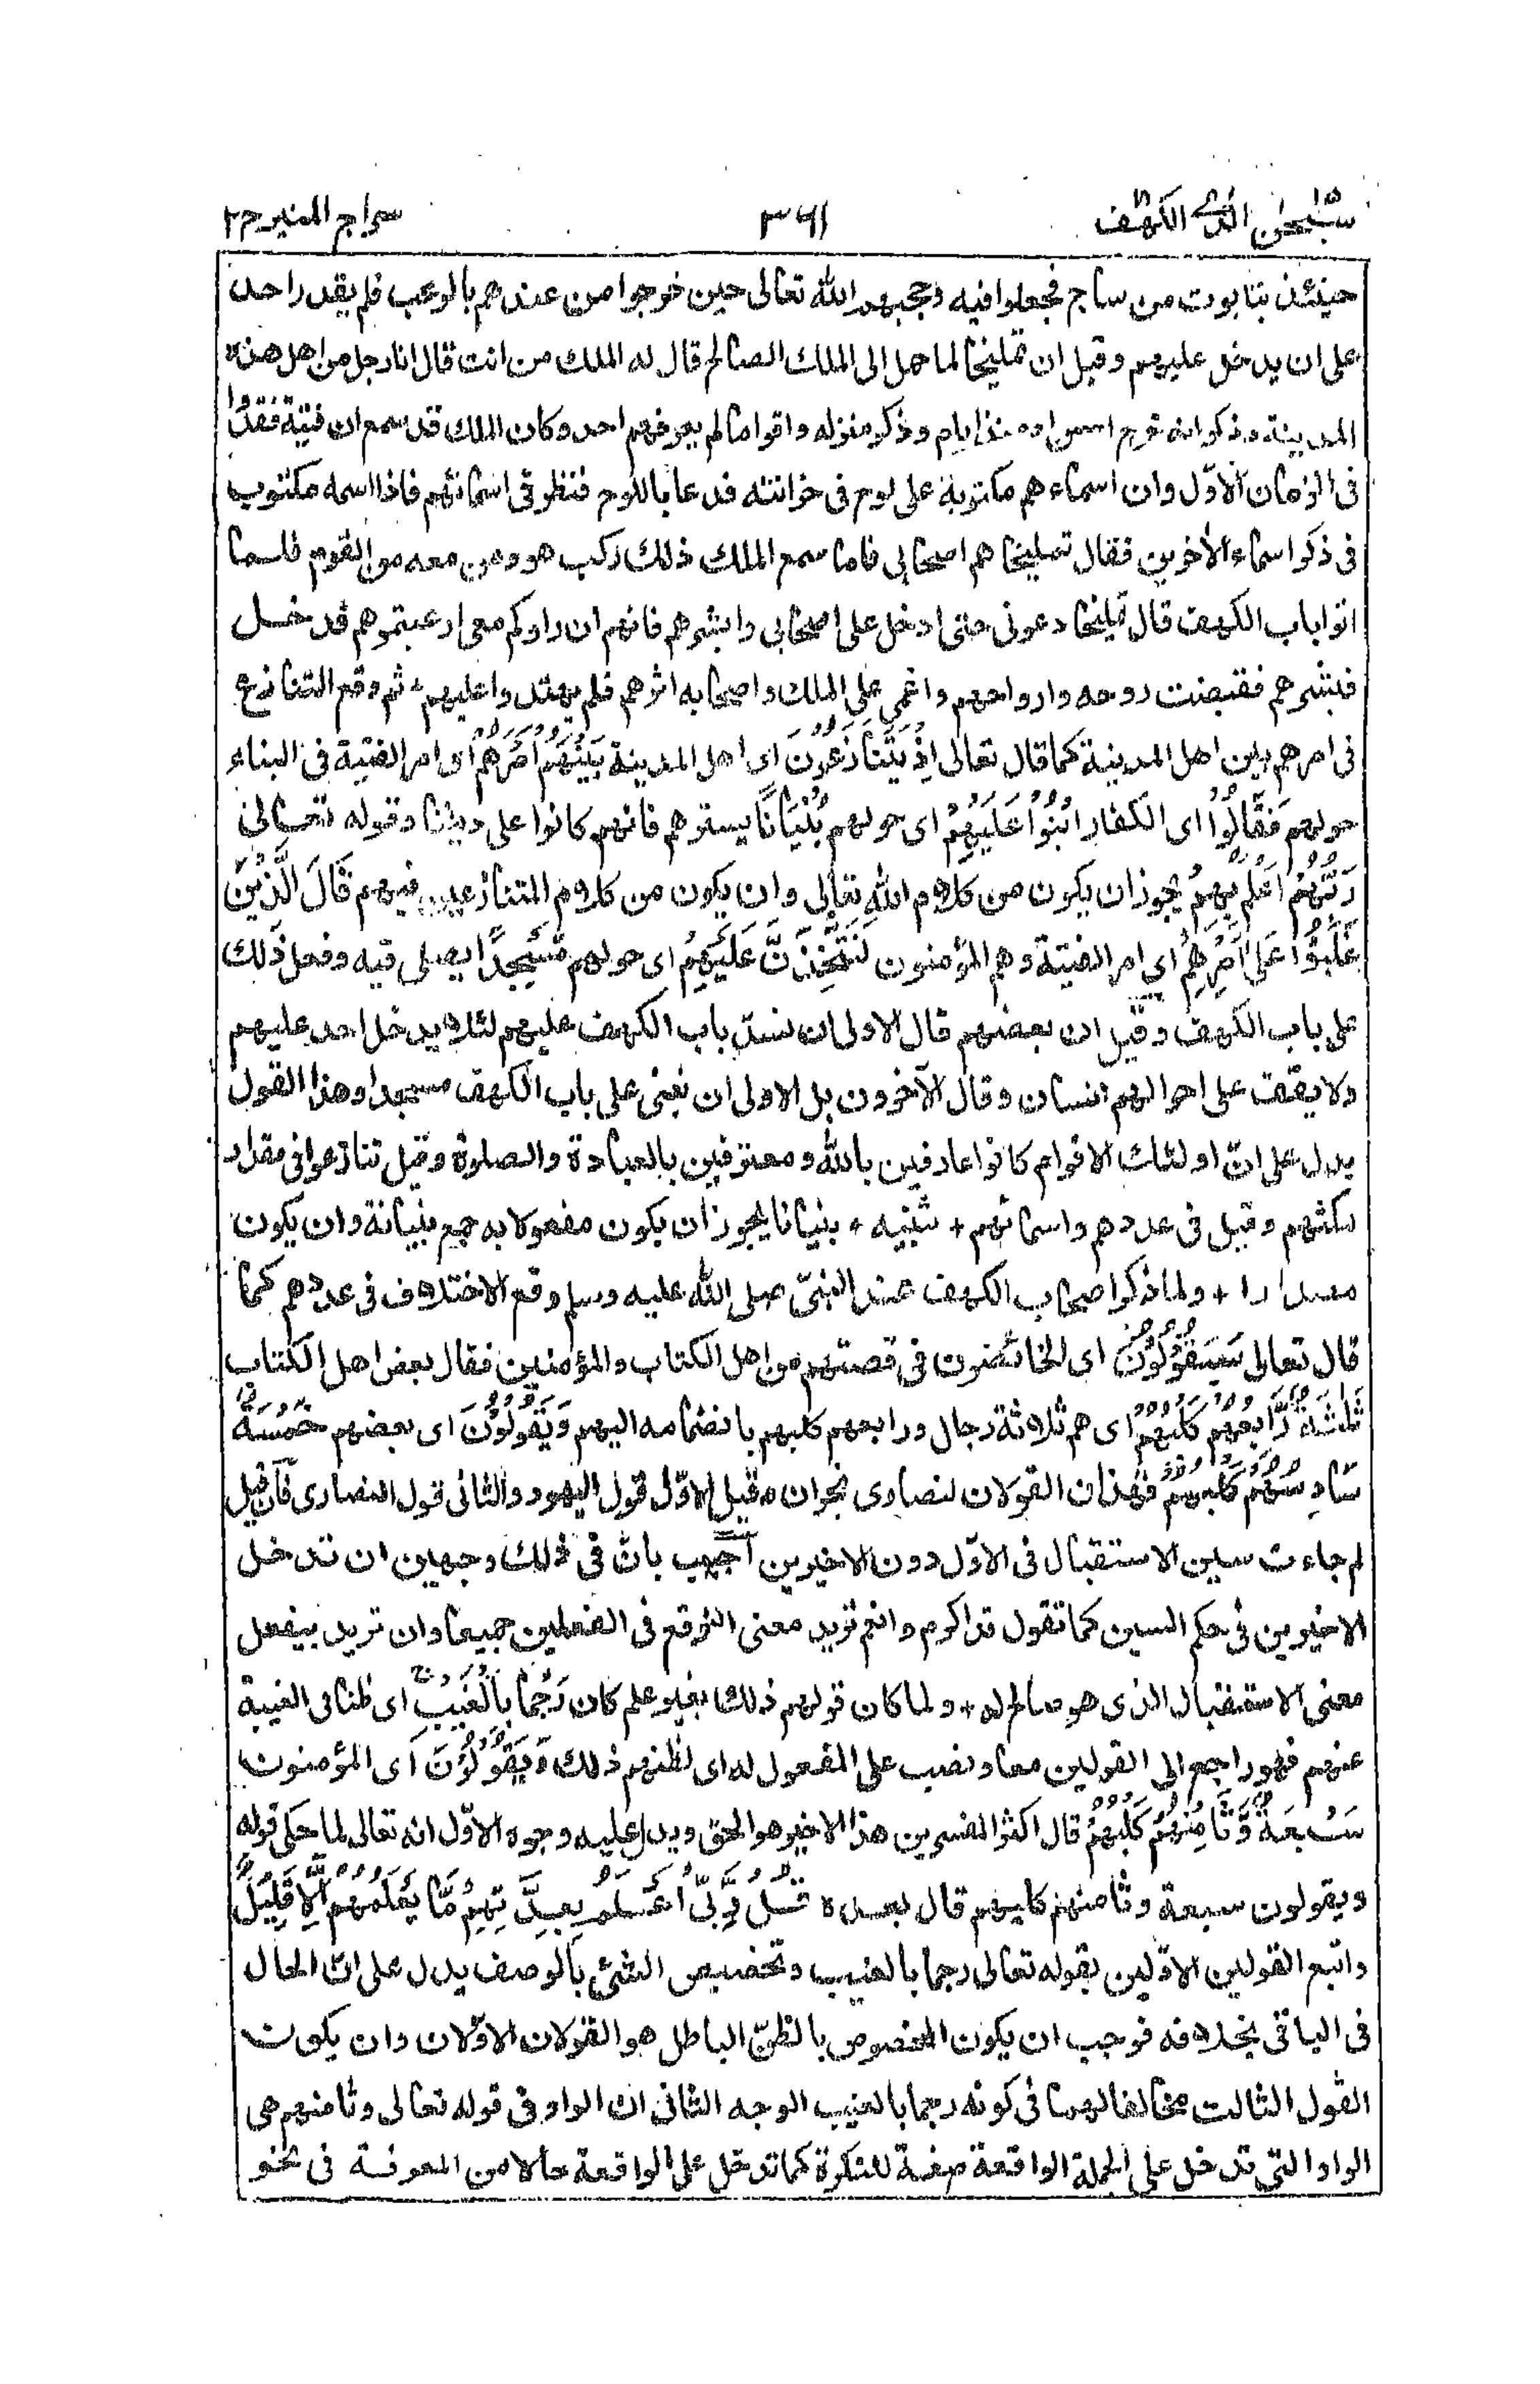 سبحٰن الذى الكهف ٣٦١ سراج المنير ج٢
حينئذ بتابوت من ساج فجعلوا فيه وحجبهم الله تعالى حين خرجوا من عندهم بالرعب فلم يقدر احد
على ان يدخل عليهم وقيل ان تمليخا لما حمل الى الملك الصالح قال له الملك من انت قال انا رجل من اهل هذه
المدينة وذكر انه خرج امس او منذ ايام وذكر منزله واقواما لم يعرفهم احد وكان الملك قد سمع ان فتية فقدوا
فى الزمان الاوّل وان اسماءهم مكتوبة على لوح فى خزانته فدعا باللوح فنظر فى اسمائهم فاذا اسمه مكتوب
فى ذكر اسماء الآخرين فقال تمليخا هم اصحابى فلما سمع الملك ذلك ركب هو ومن معه من القوم فلما
اتوا باب الكهف قال تمليخا دعونى حتى ادخل على اصحابى وابشرهم فانهم ان راوكم معى ارعبتموهم فدخل
فبشرهم فقبضت روحه وارواحهم واعمى على الملك واصحابه اثرهم فلم يهتدوا عليهم ÷ ثم وقع التنازع
فى امرهم بين اهل المدينة كما قال تعالى اِذْ يَتَنَازَعُوْنَ اى اهل المدينة بَيْنَهُمْ اَمْرَهُمْ اى امر الفتية فى البناء
حولهم فَقَالُوْا اى الكفار ابْنُوْا عَلَيْهِمْ اى حولهم بُنْيَانًا يسترهم فانهم كانوا على ديننا وقوله تعالى
رَبُّهُمْ اَعْلَمُ بِهِمْ يجوز ان يكون من كلام الله تعالى وان يكون من كلام المتنازعين فيهم قَالَ الَّذِيْنَ
غَلَبُوْا عَلٰى اَمْرِهِمْ اى امر الفتية وهم المؤمنون لَنَتَّخِذَنَّ عَلَيْهِمْ اى حولهم مَّسْجِدًا يصلى فيه وفعل ذلك
على باب الكهف وقيل ان بعضهم قال الاولى ان نسد باب الكهف عليهم لئلا يدخل احد عليهم
ولا يقف على احوالهم انسان وقال الآخرون بل الاولى ان نبنى على باب الكهف مسجدا وهذا القول
يدل على انّ اولئك الاقوام كانوا عارفين بالله ومعترفين بالعبادة والصلوة وقيل تنازعوا فى مقدار
مكثهم وقيل فى عددهم واسمائهم + تنبيه ÷ بنيانا يجوز ان يكون مفعولا به جمع بنيانة وان يكون
مصدرا + ولما ذكر اصحاب الكهف عند النبىّ صلى الله عليه وسلم وقع الاختلاف فى عددهم كما
قال تعالى سَيَقُوْلُوْنَ اى الخائضون فى قصتهم من اهل الكتاب والمؤمنين فقال بعض اهل الكتاب
ثَلٰثَةٌ رَّابِعُهُمْ كَلْبُهُمْ اى هم ثلاثة رجال ورابعهم كلبهم بانضمامه اليهم وَيَقُوْلُوْنَ اى بعضهم خَمْسَةٌ
سَادِسُهُمْ كَلْبُهُمْ فهذان القولان لنصارى نجران وقيل الاوّل قول اليهود والثانى قول النصارى فان قيل
لم جاءت سين الاستقبال فى الاوّل دون الاخيرين اجيب بان فى ذلك وجهين ان تدخل
الاخيرين فى حكم السين كما تقول قد اكرم وانعم تريد معنى التوقع فى الفعلين جميعا وان تريد بيفعل
معنى الاستقبال الذى هو صالح له + ولما كان قولهم ذلك بغير علم كان رَجْمًا بِالْغَيْبِ اى ظنا فى الغيبة
عنهم فهو راجع الى القولين معا ونصب على المفعول له اى لظنهم ذلك وَيَقُوْلُوْنَ اى المؤمنون
سَبْعَةٌ وَّثَامِنُهُمْ كَلْبُهُمْ قال اكثر المفسرين هذا الاخير هو الحق ويدل عليه وجوه الاوّل انه تعالى لما حكى قوله
ويقولون سبعة وثامنهم كلبهم قال بعده قُلْ رَّبِّىْ اَعْلَمُ بِعِدَّتِهِمْ مَّا يَعْلَمُهُمْ اِلَّا قَلِيْلٌ
واتبع القولين الاوّلين بقوله تعالى رجما بالغيب وتخصيص الشئ بالوصف يدل على انّ الحال
فى الباقى بخلافه فوجب ان يكون المخصوص بالظنّ الباطل هو القولان الاوّلان وان يكون
القول الثالث مخالفا لهما فى كونه رجما بالغيب الوجه الثانى ان الواو فى قوله تعالى وثامنهم هى
الواو التى تدخل على الجملة الواقعة صفة للنكرة كما تدخل على الواقعة حالا من المعرفة فى نحو